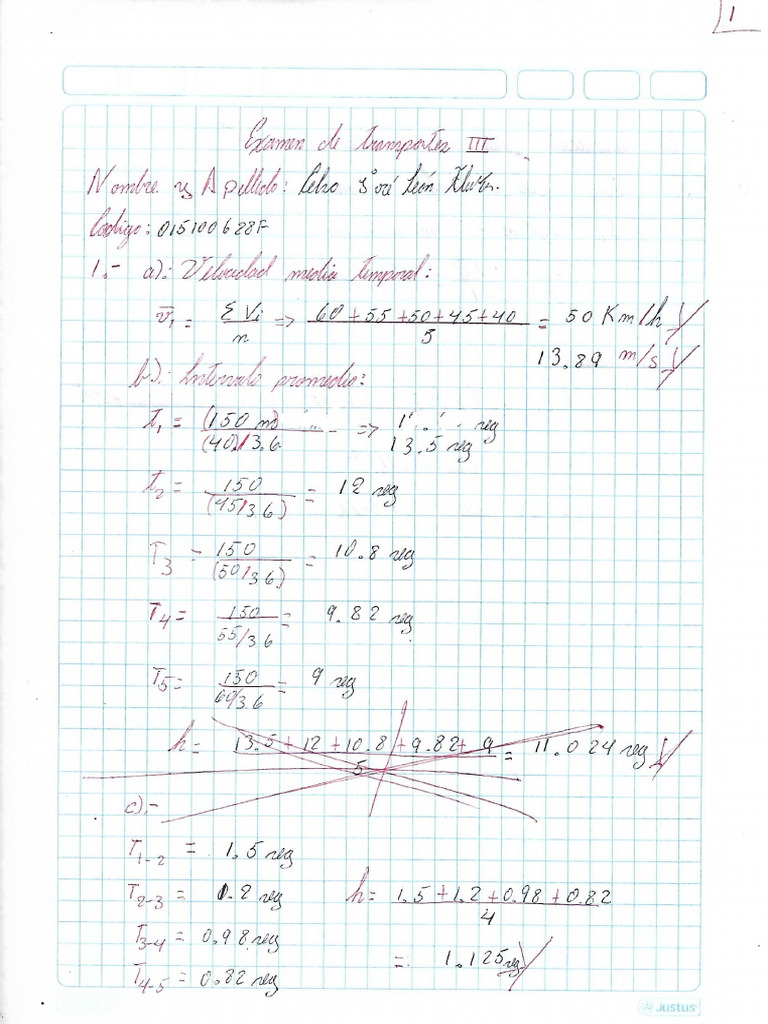 1
Examen de transportes III
Nombre y Apellido: José León
Codigo: 015100628F
1.- a).- Velocidad media temporal:
v̄₁ = Σ Vi / n => 60 + 55 + 50 + 45 + 40 / 5 = 50 Km/h
13.89 m/s
b).- Intervalo promedio:
t₁ = (150 m) / (40)/3.6 => seg
13.5 seg
t₂ = 150 / (45/3.6) = 12 seg
T₃ = 150 / (50/3.6) = 10.8 seg
T₄ = 150 / 55/3.6 = 9.82 seg
T₅ = 150 / 60/3.6 = 9 seg
h = 13.5 + 12 + 10.8 + 9.82 + 9 / 5 = 11.024 seg
c).-
T₁₋₂ = 1.5 seg
T₂₋₃ = 1.2 seg h = 1.5 + 1.2 + 0.98 + 0.82 / 4
T₃₋₄ = 0.98 seg
= 1.125 seg
T₄₋₅ = 0.82 seg
Justus